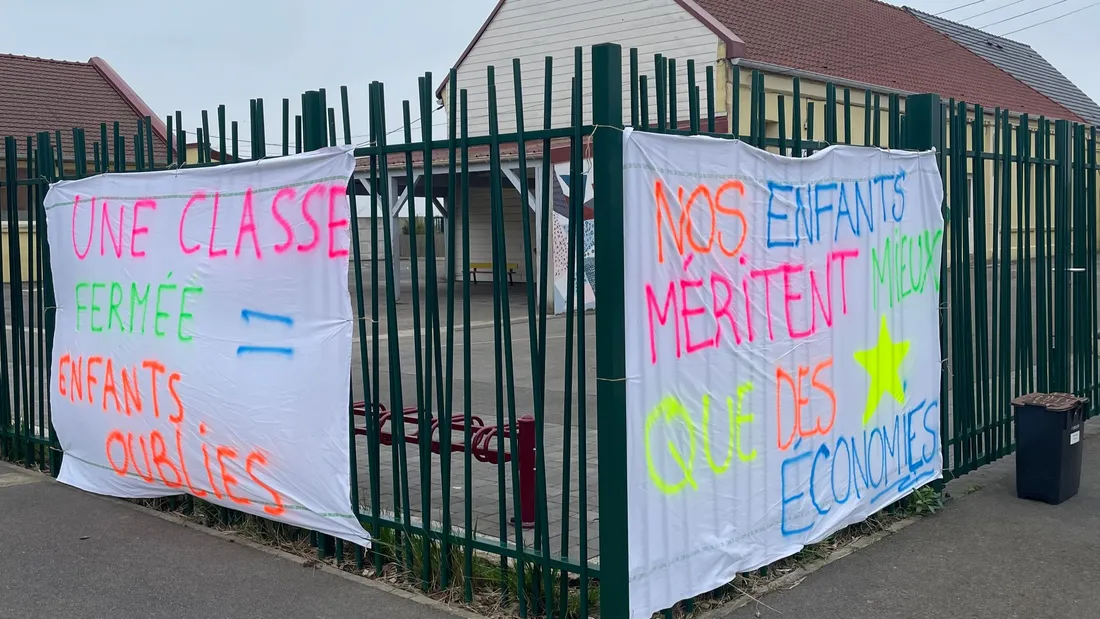 UNE CLASSE
FERMÉE =
ENFANTS
OUBLIES
NOS ENFANTS
MÉRITENT MIEUX
QUE DES
ECONOMIES